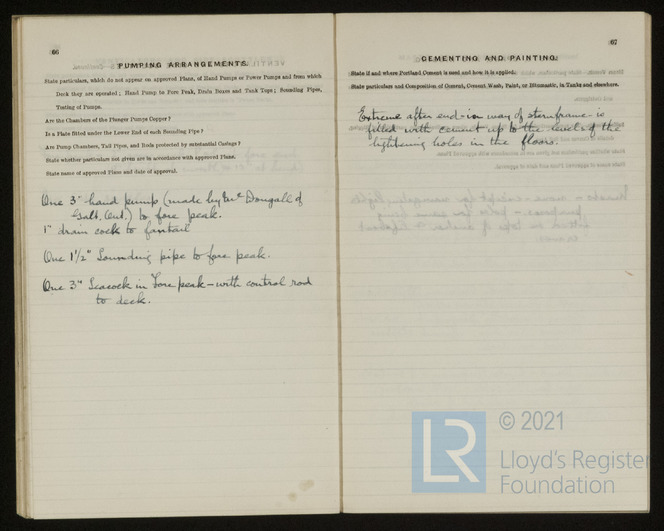 66
PUMPING ARRANGEMENTS.
State particulars, which do not appear on approved Plans, of Hand Pumps or Power Pumps and from which
Deck they are operated; Hand Pump to Fore Peak, Drain Boxes and Tank Tops; Sounding Pipes,
Testing of Pumps.
Are the Chambers of the Plunger Pumps Copper?
Is a Plate fitted under the Lower End of each Sounding Pipe?
Are Pump Chambers, Tail Pipes, and Rods protected by substantial Casings?
State whether particulars not given are in accordance with approved Plans.
State name of approved Plans and date of approval.
One 3" hand pump (made by Mc Dougall of
Galt. Ont.) to fore peak.
1" drain cock to fantail
One 1 1/2" Sounding pipe to fore peak.
One 3" Seacock in Fore peak — with control rod
to deck.
67
CEMENTING AND PAINTING.
State if and where Portland Cement is used and how it is applied.
State particulars and Composition of Cement, Cement Wash, Paint, or Bitumastic, in Tanks and elsewhere.
Extreme after end in way of sternframe is
filled with cement up to the level of the
lightening holes in the floors.
LR
© 2021
Lloyd's Register
Foundation